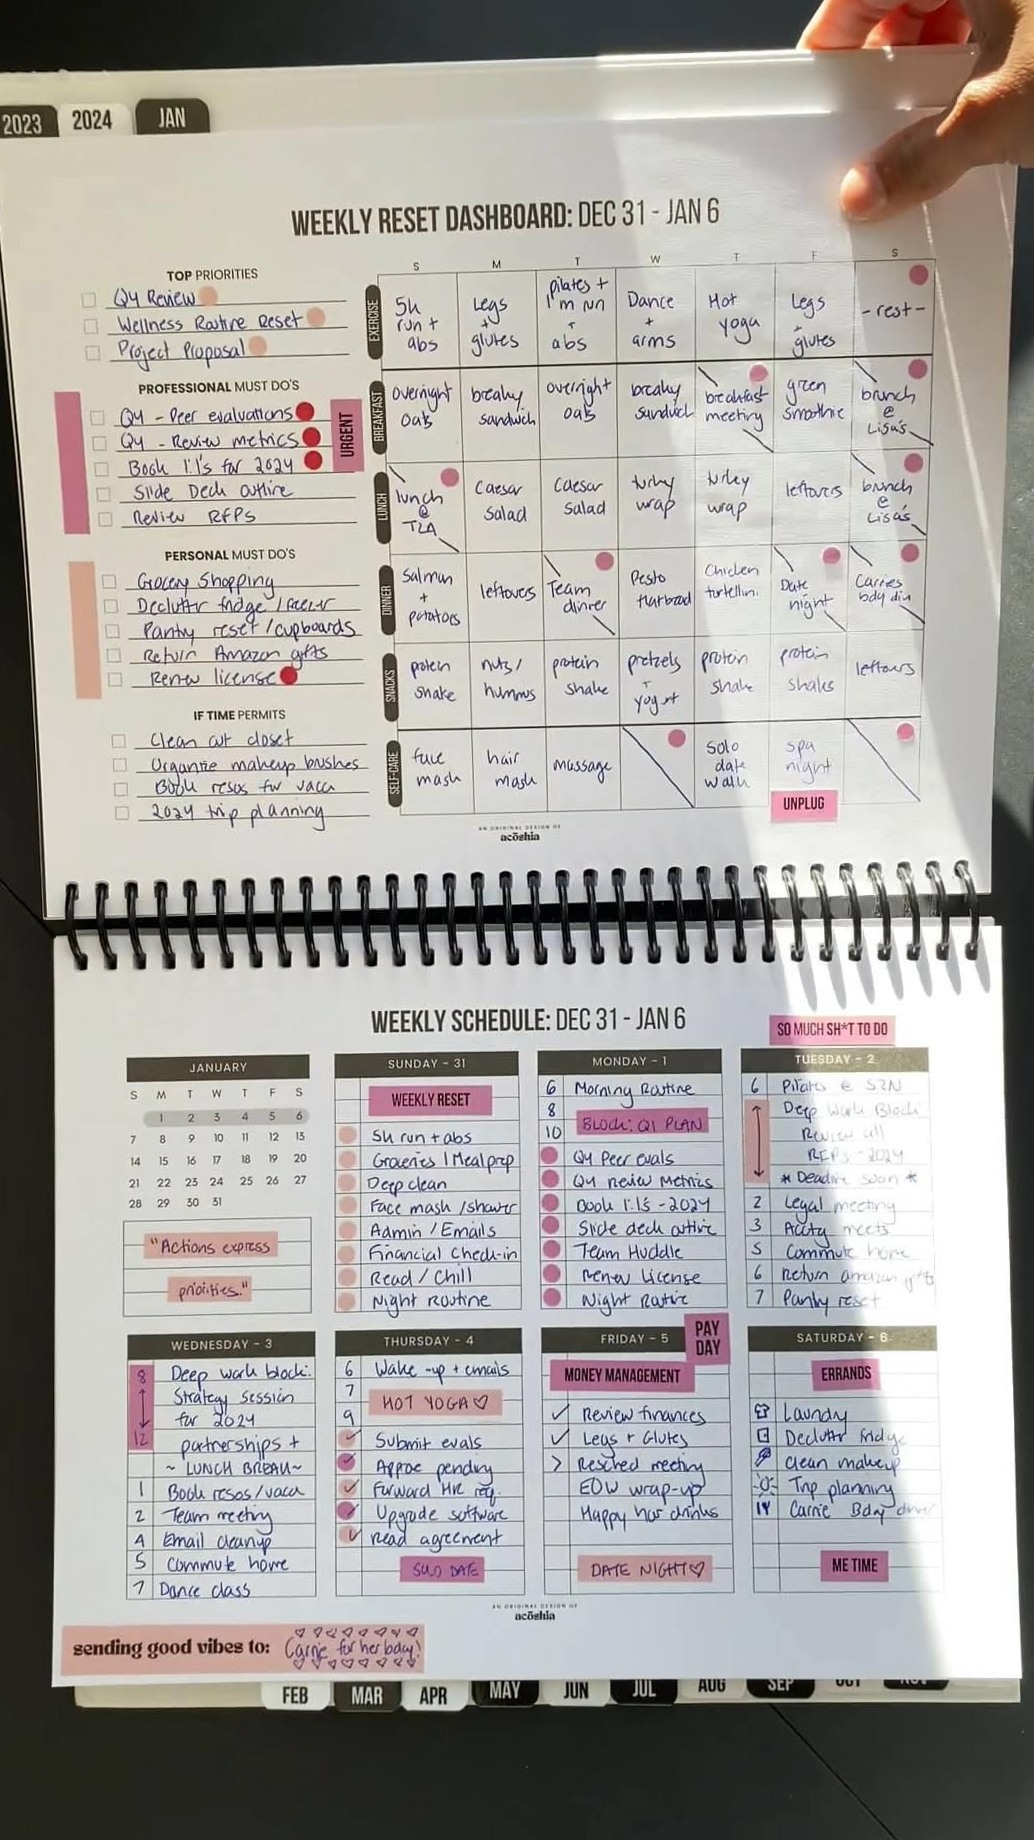 2023
2024
JAN
WEEKLY RESET DASHBOARD: DEC 31 - JAN 6
TOP PRIORITIES
Q4 Review
Wellness Routine Reset
Project Proposal
PROFESSIONAL MUST DO'S
Q4 - Peer evaluations
Q4 - Review metrics
Book 1:1's for 2024
Slide Deck outline
Review RFPs
URGENT
PERSONAL MUST DO'S
Grocery Shopping
Declutter fridge / freezer
Pantry reset / cupboards
Return Amazon gifts
Renew license
IF TIME PERMITS
Clean out closet
Organize makeup brushes
Book resos for vaca
2024 trip planning
S M T W T F S
EXERCISE
5k run + abs
Legs + glutes
pilates + I'm NN + abs
Dance + arms
Hot yoga
Legs + glutes
- rest -
BREAKFAST
overnight oats
breaky sandwich
overnight oats
breaky sandwich
breakfast meeting
green smoothie
brunch @ Lisa's
LUNCH
lunch @
caesar salad
caesar salad
turkey wrap
turkey wrap
leftovers
brunch @ Lisa's
DINNER
Salmon + potatoes
leftovers
Team dinner
Pesto flatbread
Chicken tortellini
Date night
Carries bday din
SNACKS
protein shake
nuts / hummus
protein shake
pretzels + yogurt
protein shake
protein shake
leftovers
SELF-CARE
face mask
hair mask
massage
solo date walk
spa night
UNPLUG
AN ORIGINAL DESIGN OF
acōshia
WEEKLY SCHEDULE: DEC 31 - JAN 6
SO MUCH SH*T TO DO
JANUARY
S M T W T F S
1 2 3 4 5 6
7 8 9 10 11 12 13
14 15 16 17 18 19 20
21 22 23 24 25 26 27
28 29 30 31
"Actions express
priorities."
SUNDAY - 31
WEEKLY RESET
5k run + abs
Groceries | Meal prep
Deep clean
Face mask / shower
Admin / Emails
Financial Check-in
Read / Chill
Night Routine
MONDAY - 1
6 Morning Routine
8
10 BLOCK: Q1 PLAN
Q4 Peer evals
Q4 Review Metrics
Book 1:1's - 2024
Slide deck outline
Team Huddle
Renew License
Night Routine
TUESDAY - 2
6 Pilates @ SZN
Deep Work Block:
Review all
RFPs - 2024
* Deadline soon *
2 Legal meeting
3 Acctg meets
5 Commute home
6 Return amazon gifts
7 Pantry reset
WEDNESDAY - 3
8 Deep work block:
Strategy session
for 2024
12 partnerships +
~ LUNCH BREAK ~
1 Book resos / vaca
2 Team meeting
4 Email cleanup
5 Commute home
7 Dance class
THURSDAY - 4
6 Wake-up + emails
7 HOT YOGA ♡
9
Submit evals
Approve pending
Forward HR req.
Upgrade software
Read agreement
SOLO DATE
FRIDAY - 5
PAY DAY
MONEY MANAGEMENT
✓ Review finances
✓ Legs + Glutes
> Resched meeting
EOW wrap-up
Happy hour drinks
DATE NIGHT ♡
SATURDAY - 6
ERRANDS
Laundry
Declutter fridge
Clean makeup
Trip planning
Carrie Bday dinner
ME TIME
AN ORIGINAL DESIGN OF
acōshia
sending good vibes to: Carrie for her bday!
FEB MAR APR MAY JUN JUL AUG SEP OCT NOV